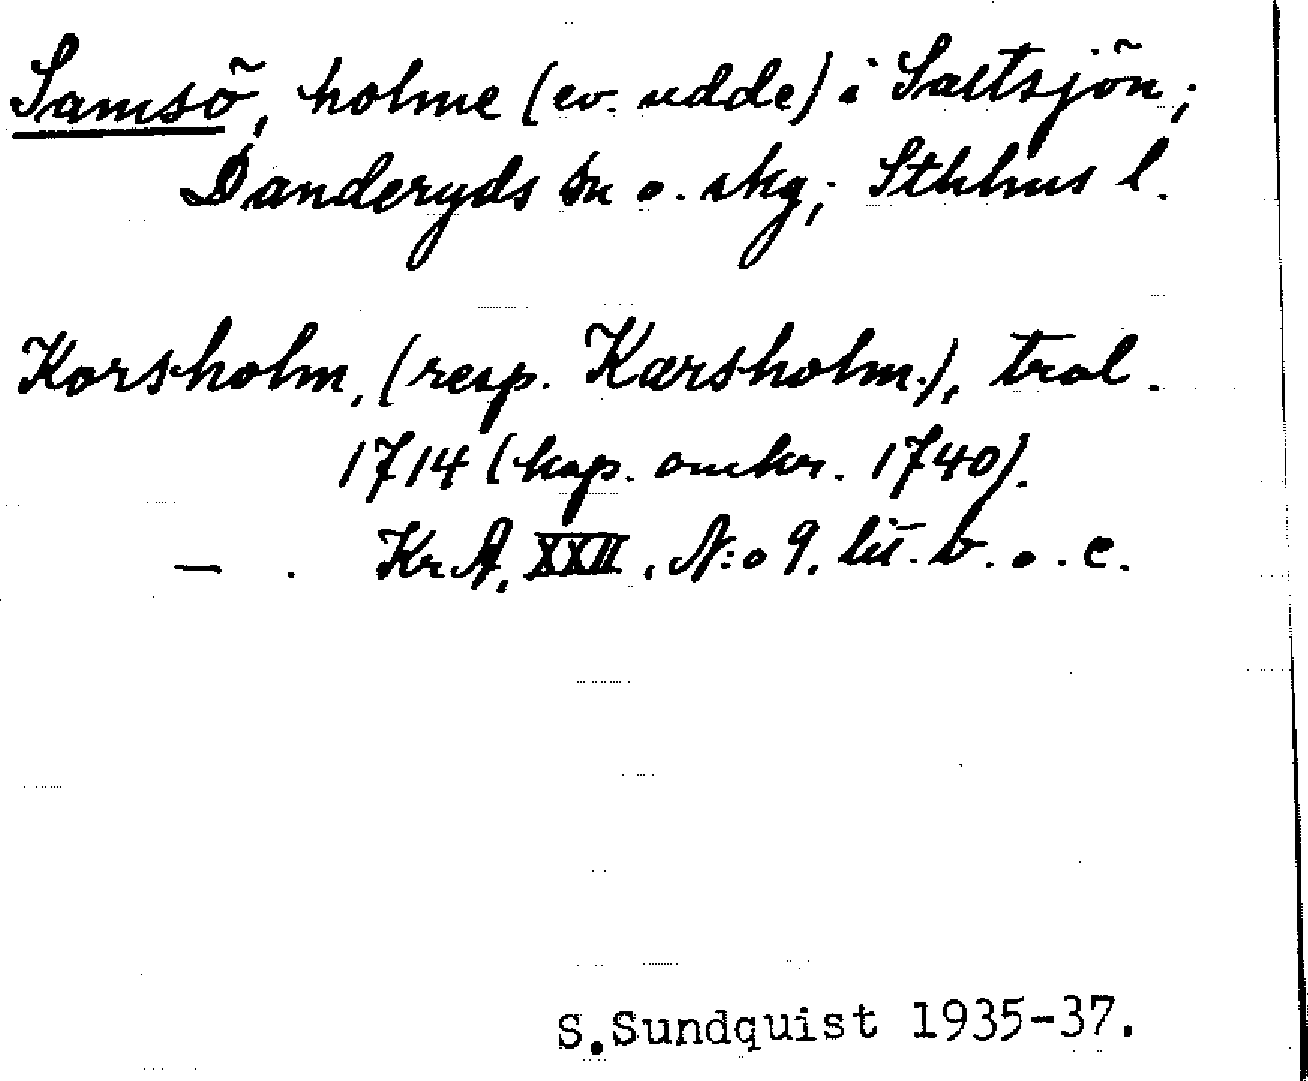 Samsö, holme (ev. udde) i Saltsjön;
Danderyds sn o. skg; Sthlms l.
Korsholm, (resp. Karsholm.), trol.
1714 (kop. omkr. 1740).
— . KrA, XXII, N:o 9. litt. b. o. c.
S.Sundquist 1935-37.